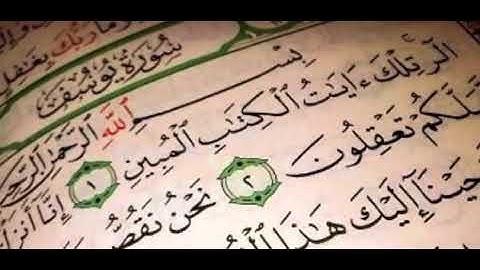 رَبُّكَ بِغَٰفِلٍ
سُورَةُ يُوسُفَ
بِسْمِ ٱللَّهِ ٱلرَّحْمَٰنِ ٱلرَّحِ
الٓر تِلْكَ ءَايَٰتُ ٱلْكِتَٰبِ ٱلْمُبِينِ ١ إِنَّآ أَنزَ
لَّكُمْ تَعْقِلُونَ ٢ نَحْنُ نَقُصُّ
حَيْنَآ إِلَيْكَ هَٰذَا